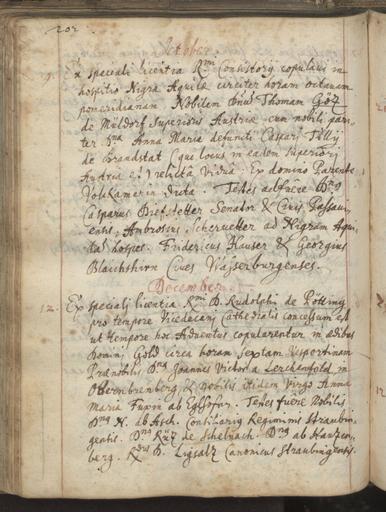 202
October
9. Ex speciali licentia Rmi Consistorij copulavi in
hospitio Nigræ Aquilæ circiter horam octavam
pomeridianam Nobilem Dnum Thomam Göz
de Müldorf Superioris Austriæ cum nobili pari-
ter Dna Anna Maria defuncti Caspari Tillij
de Brandstat (que locus in eadem superiori
Austria e.) relicta Vidua. Ex domino Parente
Volckamerin dicta. Testes adfuere Dnus
Casparus Diefstetter Senator & Civis Passavi-
ensis, Ambrosius Scheruetter ad Nigram Aqui-
lam hospes. Fridericus Hauser & Georgius
Blaichshirn Cives Wasserburgenses.
December
12. Ex speciali licentia Rmi D. Rudolphi de Pötting
pro tempore Vicedecani Cathedralis concessum est
ut tempore hoc Adventus copularentur in ædibus
Domini Gold circa horam septam Vespertinam
Prænobilis Dnus Joannes Victor a Lerchenfeld, in
Obernbrenberg, & Nobilis itidem Virgo Anna
Maria ab Eglhofen. Testes fuere Nobilis
Dnus N. ab Asch. Consiliarius Regiminis Straubin-
gensis. Dnus de Schelnach. Dnus ab Hautzen-
berg. Rdus D. Ligsalz Canonicus Straubingensis.
12